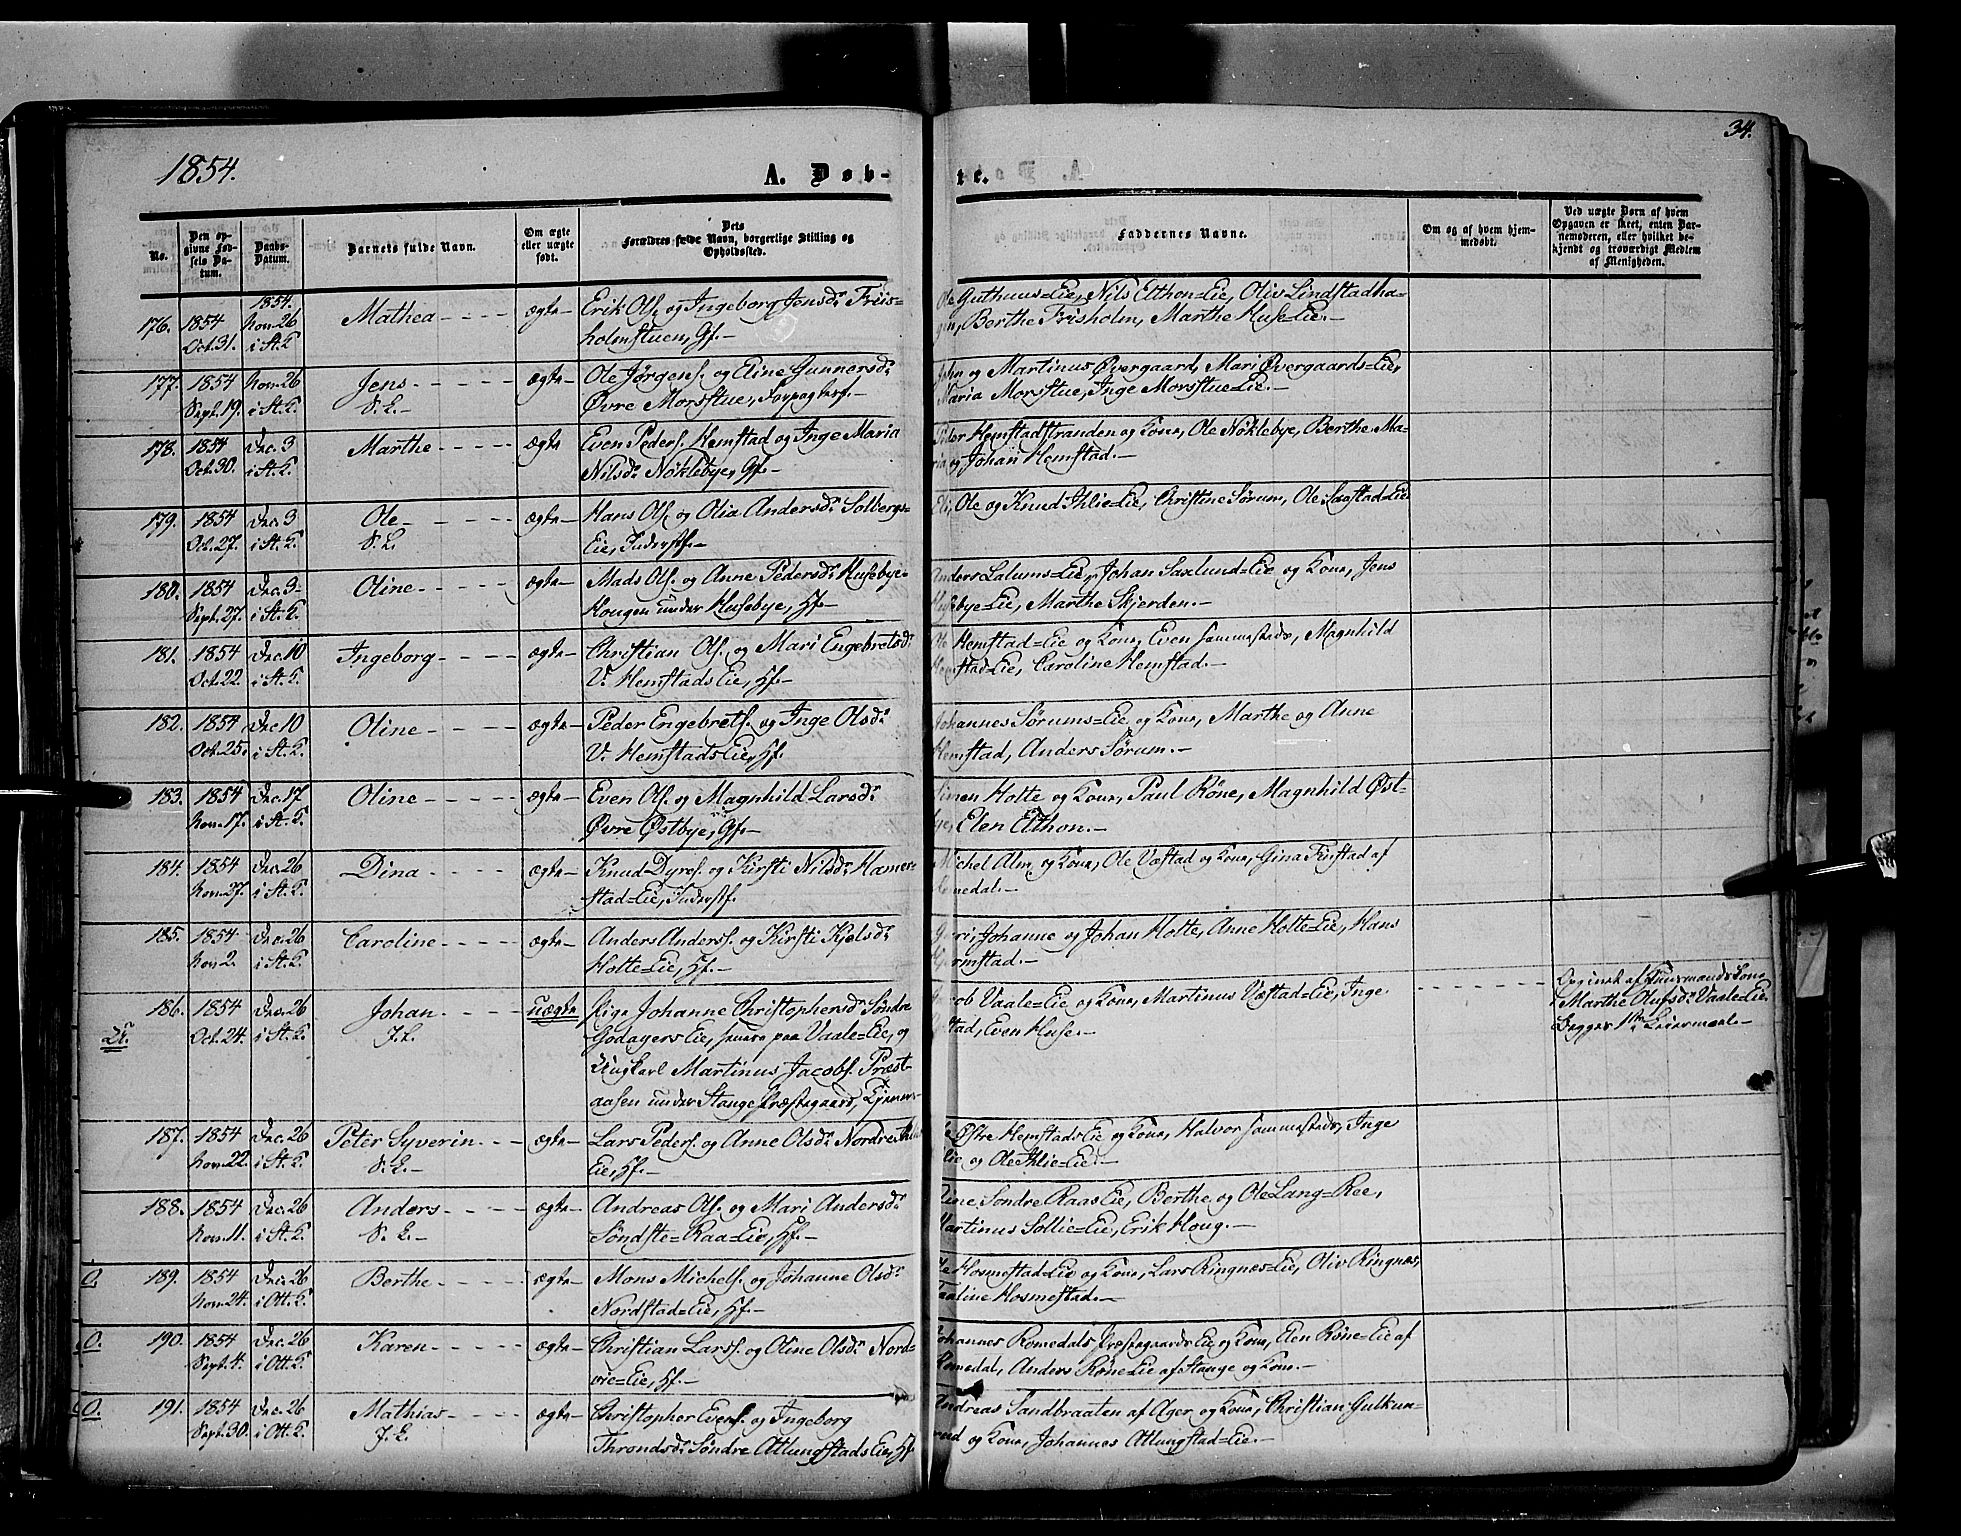 34.
1854.
A. Døb-
te.
No.
Den op-
givne Fød-
sels Da-
tum.
Daabs-
Datum.
Barnets fulde Navn.
Om ægte
eller uægte
født.
Dets
Forældres fulde Navn, borgerlige Stilling og
Opholdssted.
Faddernes Navne.
Om og af hvem hjem-
medøbt.
Ved uægte Børn af hvem
Opgaven er skeet, enten Bar-
nemoderen, eller hvilket be-
kjendt og troværdigt Medlem
af Menigheden.
176. 1854 Oct. 31.
1854. Nov. 26 i St. K
Mathea
ægte
Erik Ols. og Ingeborg Jensd. Friis-
holmstuen, Gf.
Ole Guthuus=Eie, Nils Elthon=Eie, Oliv Lindstadha-
gen, Berthe Frisholm, Marthe Huse=Eie.
177. 1854 Sept. 19.
Nov. 26 i St. K.
Jens
S. L.
ægte
Ole Jørgens. og Eline Gunnersd.
Øvre Morstue, Forpagters.
John og Martinus Øvergaard, Mari Øvergaards=Eie,
Maria Morstue, Inge Morstue=Eie.
178. 1854 Oct. 30.
Dec. 3 i St. K.
Marthe
ægte
Even Peders. Hemstad og Inge Maria
Nilsd. Nøklebye, Gf.
Peder Hemstadstranden og Kone, Ole Nøklebye, Berthe Ma-
ria og Johan Hemstad.
179. 1854 Oct. 27.
Dec. 3 i St. K.
Ole
S. L.
ægte
Hans Ols. og Olia Andersd. Solbergs=
Eie, Inderstf.
Eli, Ole og Knud Ihlie=Eie, Christine Sørum, Ole Saxstad=Eie
180. 1854 Sept. 27.
Dec. 3 i St. K.
Oline
ægte
Mads Ols. og Anne Pedersd. Husebye-
Hougen under Husebye, Hf.
Anders Lalums=Eie, Johan Saxlund=Eie og Kone, Jens
Husebye=Eie, Marthe Skjerden.
181. 1854 Oct. 22.
Dec. 10 i St. K.
Ingeborg
ægte
Christian Ols. og Mari Engebretsd.
V. Hemstads Eie, Hf.
Ole Hemstad=Eie og Kone, Even sammesteds, Magnhild
Hemstad=Eie, Caroline Hemstad.
182. 1854 Oct. 25.
Dec. 10 i St. K.
Oline
ægte
Peder Engebrets. og Inge Olsd.
V. Hemstads Eie, Hf.
Johannes Sørums=Eie og Kone, Marthe og Anne
Hemstad, Anders Sørum.
183. 1854 Nov. 17.
Dec. 17 i St. K.
Oline
ægte
Even Ols. og Magnhild Larsd.
Øvre Østbye, Gf.
Simen Holte og Kone, Paul Røne, Magnhild Øst-
bye, Elen Elthon.
184. 1854 Nov. 27.
Dec. 26 i St. K.
Dina
ægte
Knud Dyres. og Kirsti Nilsd. Hamer-
stad=Eie, Inderstf.
Michel Alm og Kone, Ole Væstad og Kone, Gina Finstad af
Romedal.
185. 1854 Nov. 2.
Dec. 26 i St. K.
Caroline
ægte
Anders Anders. og Kirsti Kjelsd.
Holte=Eie, Hf.
Johanne og Johan Holte, Anne Holte=Eie, Hans
Hjermstad.
186. 1854 Oct. 24.
Dec. 26 i St. K.
Johan
J. L.
uægte
Pige Johanne Christophersd. Søndre
Godagers Eie, senere paa Vaale=Eie, og
Ungkarl Martinus Jacobs. Præst-
aasen under Stange Præstegaard,
Jacob Vaale=Eie og Kone, Martinus Væstad=Eie, Inge
Even Huse.
Opgivet af Huusmands Kone
Marthe Olufsd. Vaale=Eie.
Begges 1ste Leiermaal.
187. 1854 Nov. 22.
Dec. 26 i St. K.
Peter Syverin
S. L.
ægte
Lars Peders. og Anne Olsd. Nordre
Eie, Hf.
Østre Hemstads Eie og Kone, Halvor sammesteds, Inge
Ihlie og Ole Ihlie=Eie.
188. 1854 Nov. 11.
Dec. 26 i St. K.
Anders
S. L.
ægte
Andreas Ols. og Mari Andersd.
Søndste=Raa=Eie, Hf.
Søndre Raas Eie, Berthe og Ole Lang=Ree,
Martinus Sollie=Eie, Erik Houg.
O. 189. 1854 Nov. 24.
Dec. 26 i Ott. K.
Berthe
ægte
Mons Michels. og Johanne Olsd.
Nordstad=Eie, Hf.
Ole Hosmestad=Eie og Kone, Lars Ringnes=Eie, Oliv Ringnes,
Pauline Hosmestad.
O. 190. 1854 Sept. 4.
Dec. 26 i Ott. K.
Karen
ægte
Christian Lars. og Oline Olsd. Nord-
vie=Eie, Hf.
Johannes Romedals Præstegaards Eie og Kone, Elen Røne=Eie af
Romedal, Anders Røne=Eie af Stange og Kone.
O. 191. 1854 Sept. 30.
Dec. 26 i Ott. K.
Mathias
J. L.
ægte
Christopher Evens. og Ingeborg
Throndsd. Søndre Atlungstads Eie, Hf.
Andreas Sandbraaten af Ager og Kone, Christian Gulkun-
rud og Kone, Johannes Atlungstad=Eie.